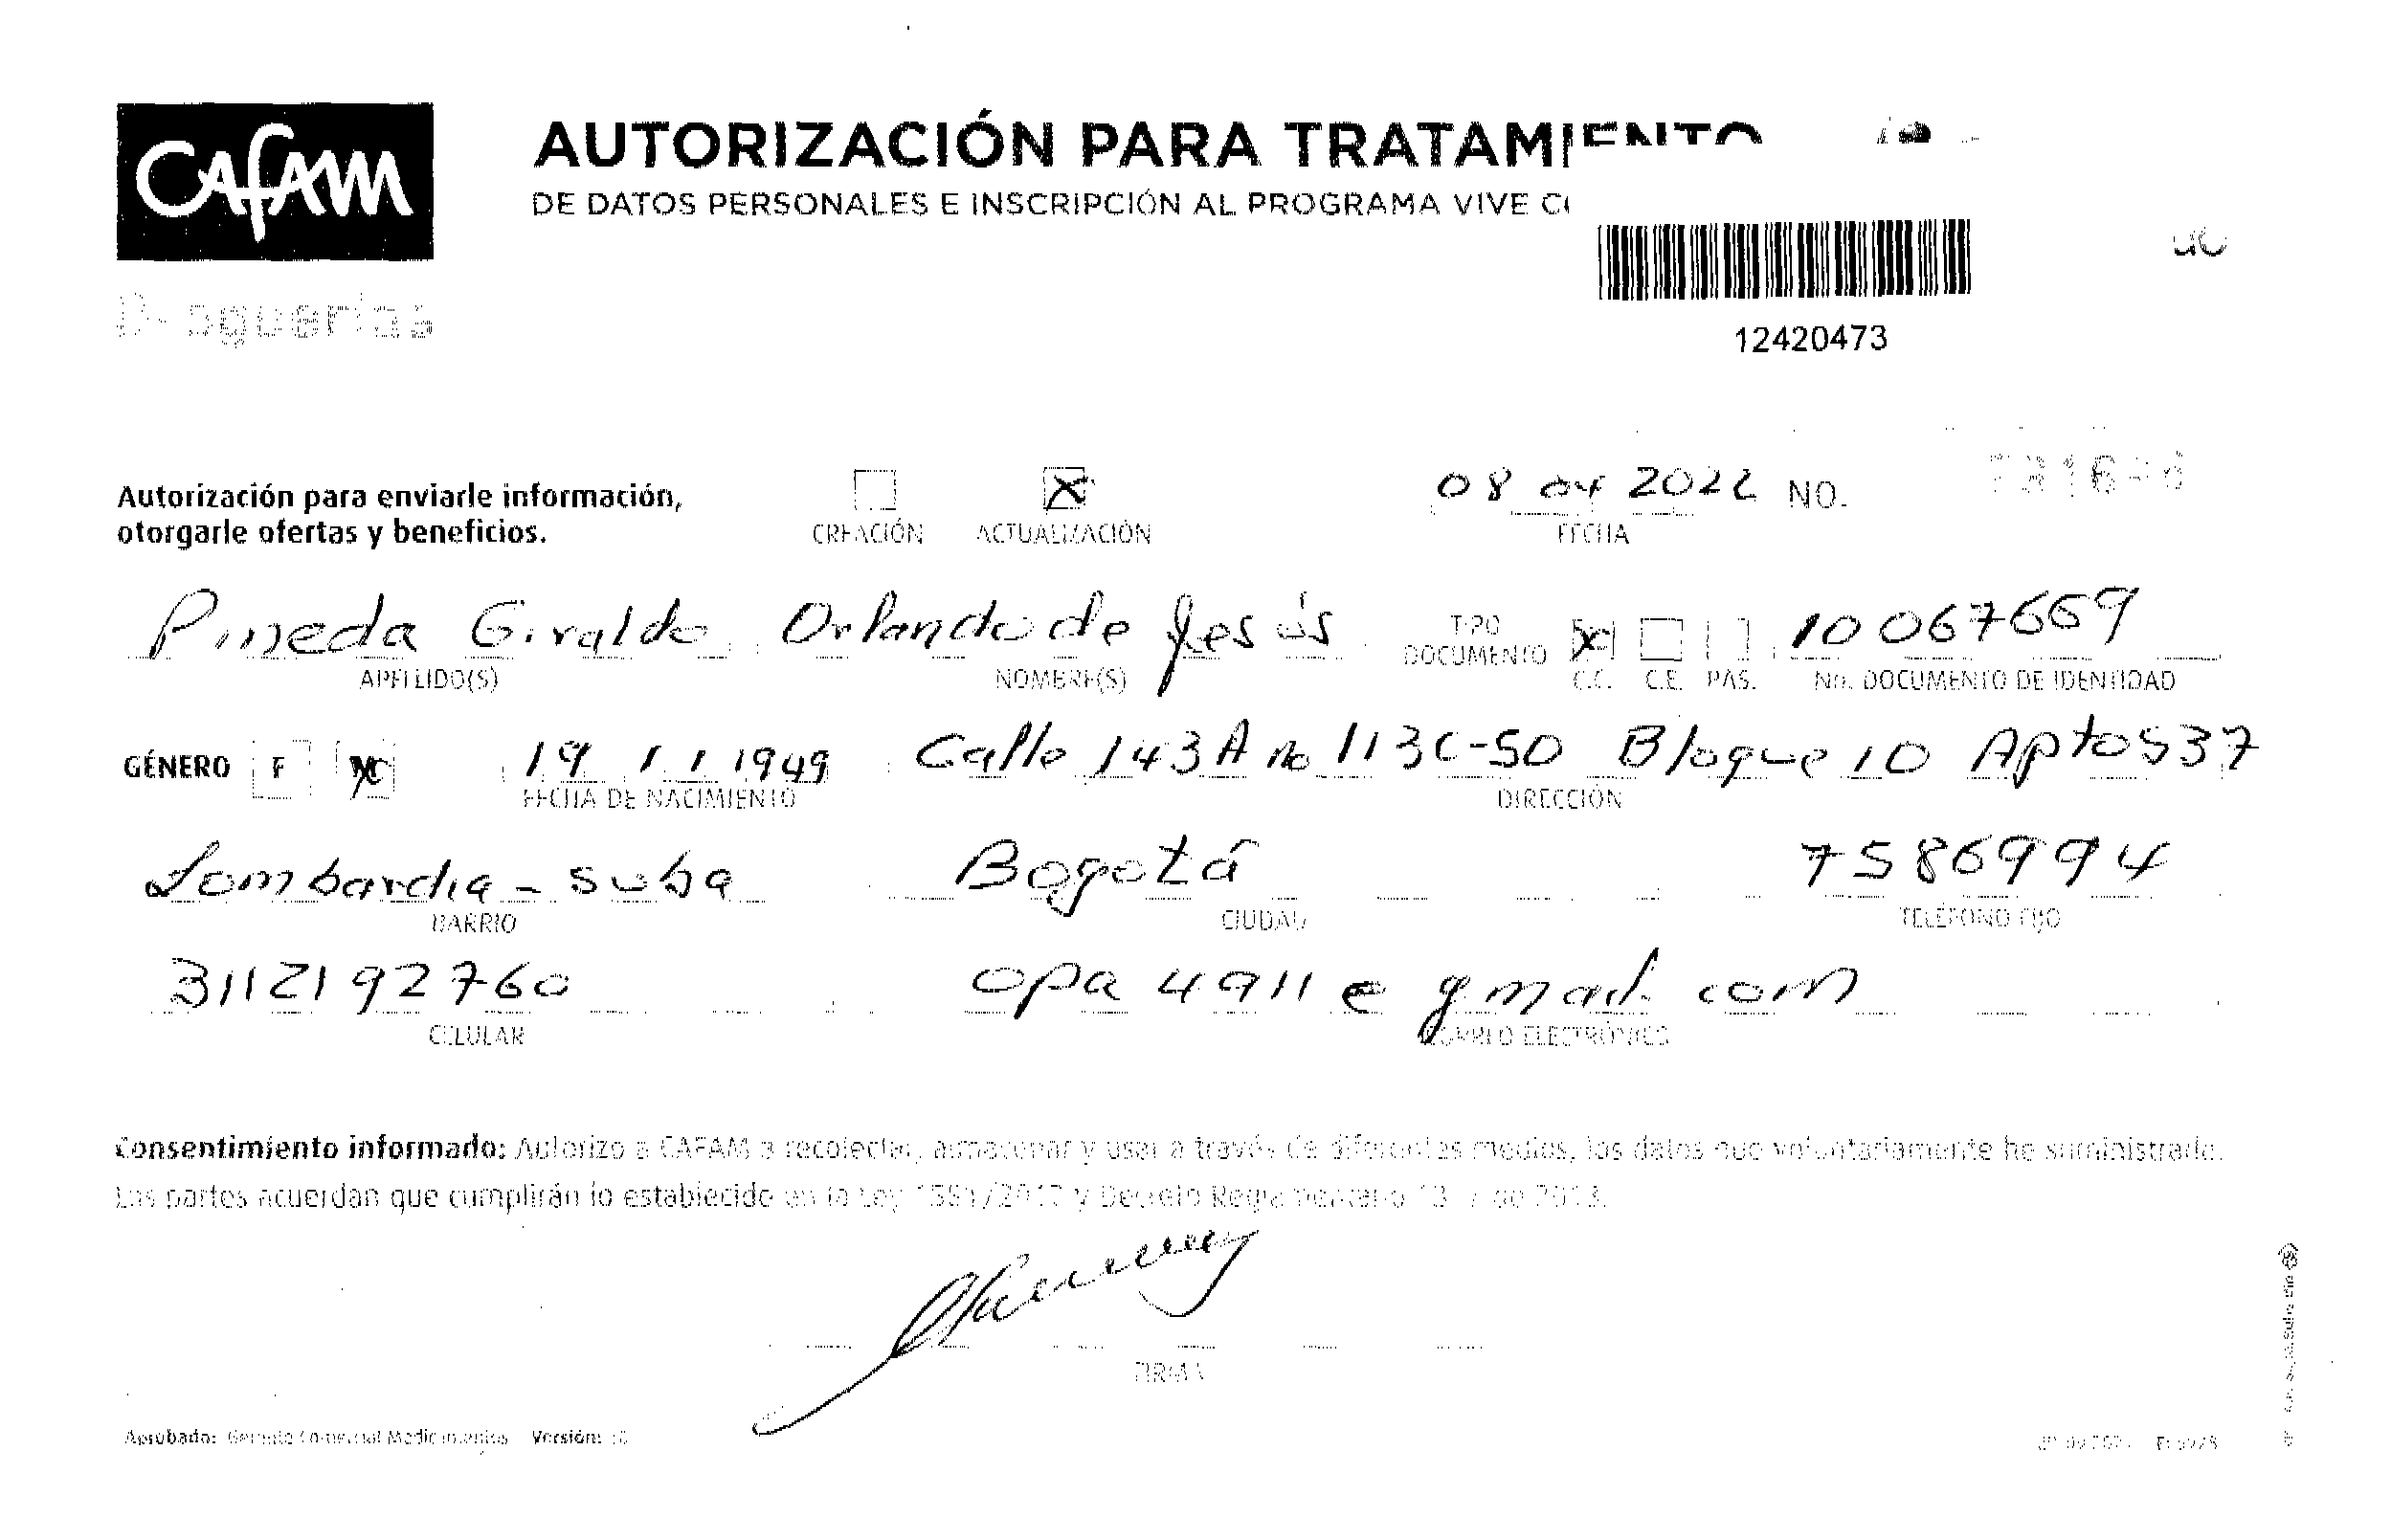 CAFAM
AUTORIZACIÓN PARA TRATAMIENTO
DE DATOS PERSONALES E INSCRIPCIÓN AL PROGRAMA VIVE
Droguerías
12420473
Autorización para enviarle información,
otorgarle ofertas y beneficios.
CREACIÓN X ACTUALIZACIÓN
08 04 2022 NO.
FECHA
Pineda Giraldo Orlando de Jesús TIPO DOCUMENTO X 10067659
APELLIDO(S) NOMBRE(S) C.C. C.E. PAS. No. DOCUMENTO DE IDENTIDAD
GÉNERO F M 19 11 1949 Calle 143A No 113C-50 Bloque 10 Apto 537
FECHA DE NACIMIENTO DIRECCIÓN
Lombardia - suba Bogotá 7586994
BARRIO CIUDAD TELÉFONO FIJO
3112192760 opa4911@gmail.com
CELULAR CORREO ELECTRÓNICO
Consentimiento informado: Autorizo a CAFAM a recolectar, almacenar y usar a través de diferentes medios, los datos que voluntariamente he suministrado.
Las partes acuerdan que cumplirán lo establecido en la Ley 1581/2012 y Decreto Reglamentario de 2013.
FIRMA
Aprobado: Gerente Comercial Medicamentos Versión: